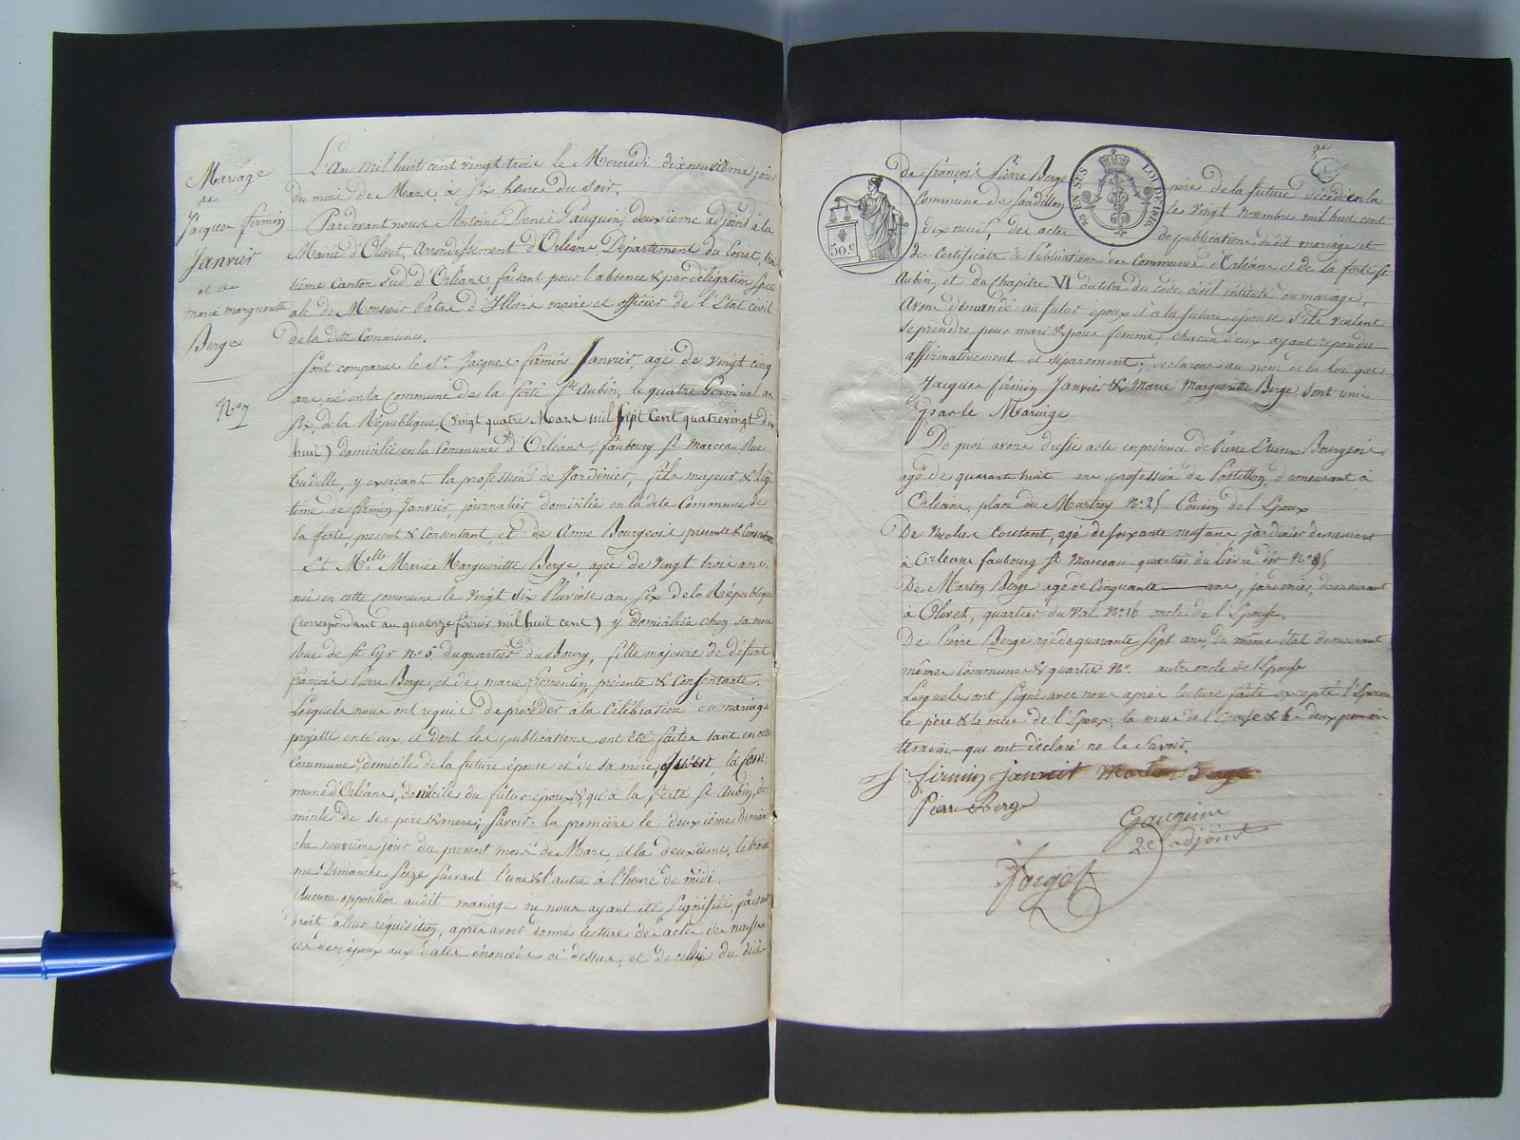 Mariage
de
Jacques firmin
Janvier
et de
marie margueritte
Berge
N° 7
L'an mil huit cent vingt trois le Mercredi dixneuvième jour
du mois de Mars, à six heures du soir.
Pardevant nous Antoine Denis Gauguin, deuxième adjoint à la
Mairie d'Olivet, arrondissement d'Orléans Département du Loiret,
tième Canton sud d'Orléans faisant pour l'absence & par délégation spéci
ale de Monsieur maire et officier de l'Etat civil
de la dite Commune.
Sont comparus le Sr. Jacques firmin Janvier, agé de vingt cinq
ans, né en la commune de la ferté St. Aubin, le quatre Germinal an
six de la République, (vingt quatre Mars mil sept Cent quatrevingt dix
huit) domicilié en la Commune d'Orléans, faubourg St. Marceau Rue
tudelle, y exerçant la profession de Jardinier, fils majeur & légi
time de firmin Janvier, journalier domicilié en la dite Commune de
la ferté, présent & Consentant, et de Anne Bourgeois présente & Consentante
Et Melle Marie Margueritte Berge, agée de vingt trois ans,
née en cette commune le vingt dix Pluviose an six de la République
(correspondant au quatorze février mil huit cent) y domiciliée chez sa mère
Rue de St. Cyr n° 6. du quartier du bourg, fille majeure de défunt
françois Pierre Berge, et de marie florentin, présente & Consentante.
Lesquels nous ont requis de procéder à la Célébration du mariage
projetté entr'eux, et dont les publications ont été faites tant en cette
Commune, domicile de la future épouse et de sa mère, la Com
mune d'Orléans, domicile du futur époux & qu'à la ferté St. Aubin, do
micile de ses père & mère; savoir: la première le deuxième Diman
che neuvième jour du présent mois de Mars, et la deuxième, le troisiè
me Dimanche seize suivant l'une & l'autre à l'heure de midi.
Aucune opposition audit mariage ne nous ayant été signifiée, faisant
droit à leur réquisition, après avoir donné lecture des actes de naissan
ce des époux aux dates énoncées ci dessus, et de celui du décès
de françois Pierre Berge père de la future décédé en la
Commune de Sandillon le vingt novembre mil huit cent
dix neuf, des actes de publications dudit mariage et
de Certificats de Publications des Communes d'Orléans et de la ferté St
Aubin, et du Chapitre VI du titre du code civil intitulé du mariage,
Avons demandé au futur époux et à la future épouse s'ils veulent
se prendre pour mari & pour femme; chacun d'eux ayant répondu
affirmativement et séparément; déclarons au nom de la loi que
Jacques firmin Janvier & Marie Marguerite Berge sont unis
par le Mariage
De quoi avons dressé acte en présence de Pierre Etienne Bourgeois
agé de quarante huit ans profession de Postillon, demeurant à
Orléans, place du Martroy n° 25 Cousin de l'Epoux
De Nicolas Coustant, agé de soixante neuf ans jardinier demeurant
à Orléans faubourg St Marceau quartier du lièvre d'or n° 85
De Martin Berge agé de Cinquante ans, jardinier, demeurant
à Olivet, quartier du Val n° 16 oncle de l'Epouse.
De Pierre Berge agé de quarante sept ans, du même état demeurant
même Commune & quartier n°. autre oncle de l'Epouse
Lesquels ont signé avec nous après lecture faite excepté l'Epouse
le père & la mère de l'Epoux, la mère de l'Epouse & les deux premiers
témoins qui ont déclaré ne le savoir,
J. firmin janvit Martin Berge
Pierre Berge
Gauguin
2e adjoint
Forget
50 c.
LOI DE 1816